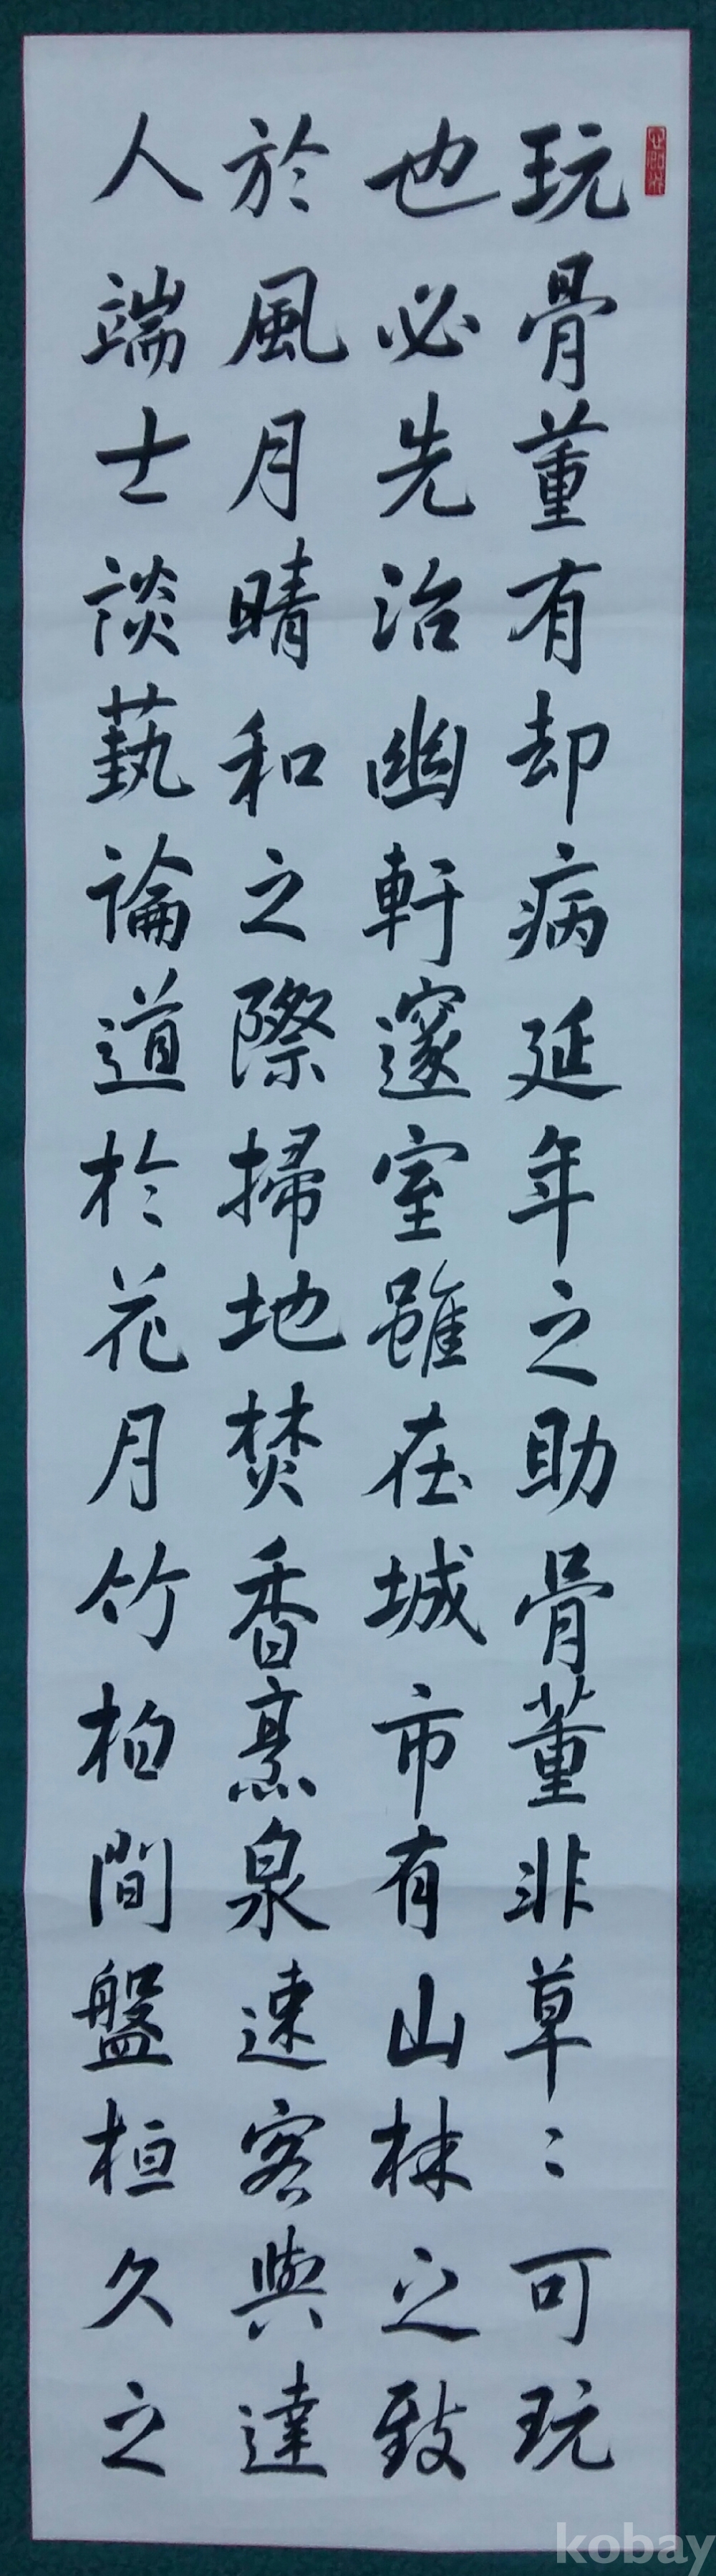 玩骨董有却病延年之助骨董非草〻可玩
也必先治幽軒邃室雖在城市有山林之致
於風月晴和之際掃地焚香烹泉速客與達
人端士談藝論道於花月竹柏間盤桓久之
kobay